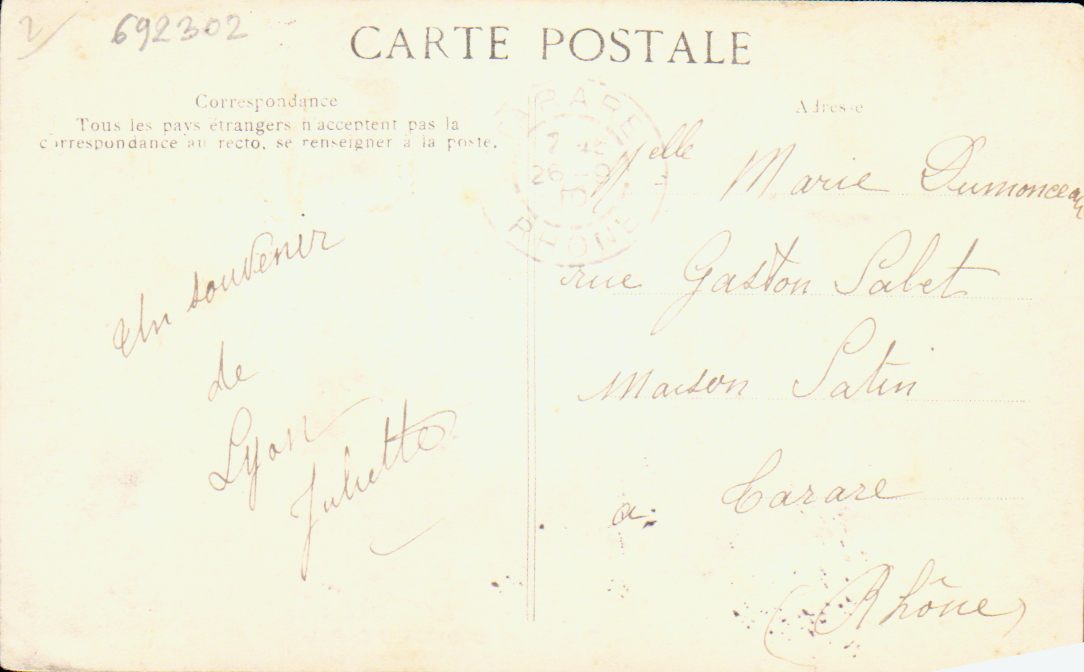 692302
CARTE POSTALE
Correspondance
Tous les pays étrangers n'acceptent pas la
correspondance au recto, se renseigner à la poste.
Un souvenir
de
Lyon
Juliette
Adresse
TARARE
26
RHONE
Melle Marie Dumonceau
rue Gaston Salet
Maison Satin
a Tarare
(Rhône)